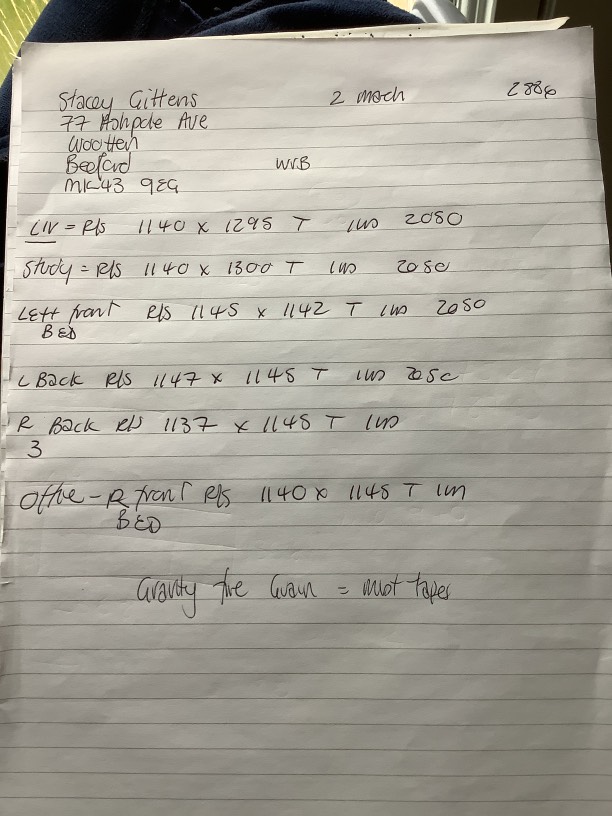 Stacey Gittens 2 mach 2886
77 Ashpole Ave
Wootten
Bedford W.B
MK43 9EG
LIV = R/s 1140 x 1295 T 2080
Study = R/s 1140 x 1300 T 2080
Left front R/s 1145 x 1142 T 2080
BED
L Back R/s 1147 x 1145 T 2080
R Back R/s 1137 x 1145 T
3
Office - R front R/s 1140 x 1145 T
BED
Gravity fine Grain = mot tapes